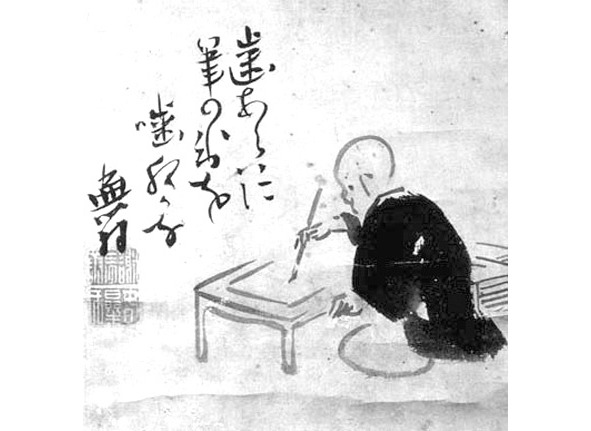 歯あらハに
筆の氷を
噛夜かな
蕪村